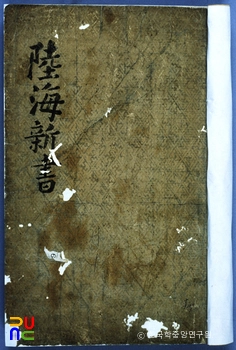 陸海新書
RUNC
© 한국학중앙연구원